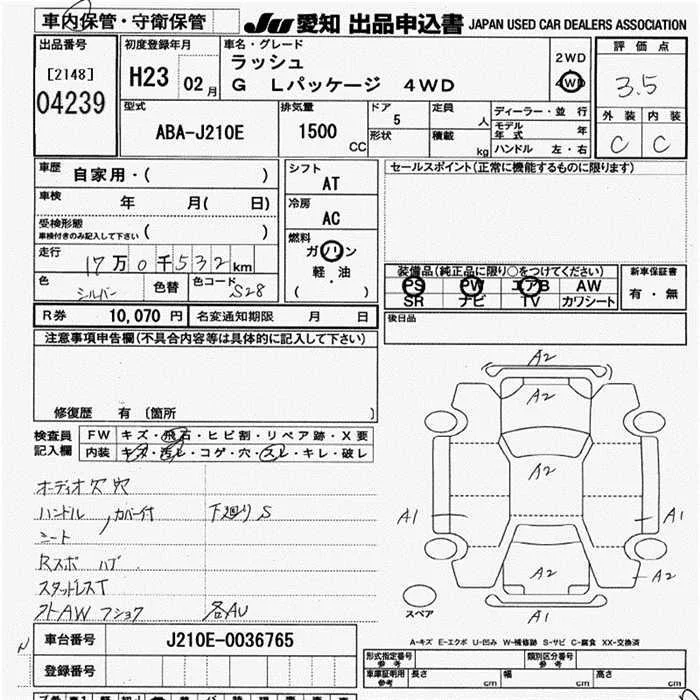 車内保管・守衛保管
JU 愛知 出品申込書 JAPAN USED CAR DEALERS ASSOCIATION
出品番号
[2148]
04239
初度登録年月
H23 02月
車名・グレード
ラッシュ
G Lパッケージ 4WD
2WD
4WD
評価点
3.5
外装 内装
C C
型式
ABA-J210E
排気量
1500
CC
ドア
5
形状
定員
人
積載
kg
ディーラー・並行
モデル年式 年
ハンドル 左・右
車歴
自家用・( )
車検
年 月( 日)
受検形態
車検付きのみ記入して下さい ( )
走行
17万0千532km
色
シルバー
色替
色コード
S28
シフト
AT
冷房
AC
燃料
ガソリン
軽・油
( )
セールスポイント(正常に機能するものに限ります)
装備品(純正品に限り○をつけてください)
PS PW エアB AW
SR ナビ TV カワシート
新車保証書
有・無
後日品
R券 10,070円 名変通知期限 月 日
注意事項申告欄(不具合内容等は具体的に記入して下さい)
修復歴 有 〔箇所 〕
検査員
記入欄
FW キズ・飛石・ヒビ割・リペア跡・X要
内装 キズ・汚レ・コゲ・穴・スレ・キレ・破レ
オーディオ欠 穴
ハンドル カバー付 下廻りS
シート
スタッドレスT
AW フショク 各AU
A2
A2
A2
A1
A1
A2
A2
A1
スペア
A-キズ E-エクボ U-凹み W-補修跡 S-サビ C-腐食 XX-交換済
車台番号
J210E-0036765
登録番号
形式指定番号
参考
類別区分番号
参考
車庫証明用
参考
長さ cm 幅 cm 高さ cm